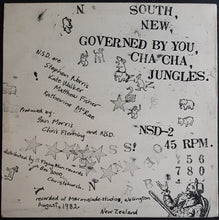 SOUTH,
NEW,
GOVERNED BY YOU,
CHA CHA,
JUNGLES.
N.S.D. are
Stephen Norris
Kate Walker
Mathew Fisher
Katherine McRae
Produced by:
Ian Morris
Chris Fleming and NSD.
NSD-2
45 RPM.
distributed by Flying Nun records
Christchurch.
recorded at Marmalade studios, Wellington
August, 1982
New Zealand